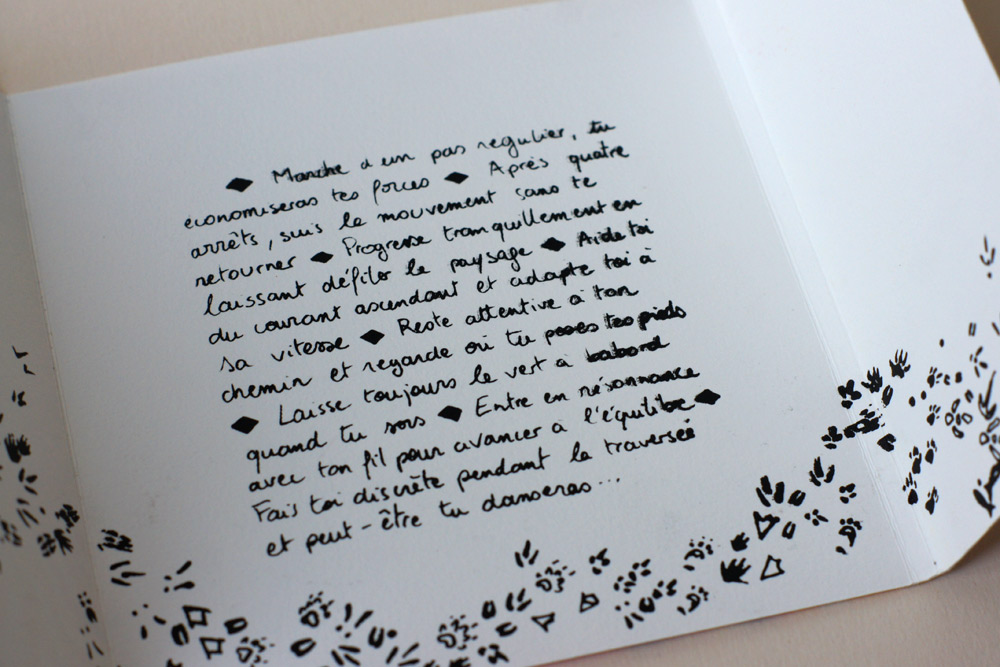 ◆ Marche d'un pas régulier, tu
économiseras tes forces ◆ Après quatre
arrêts, suis le mouvement sans te
retourner ◆ Progresse tranquillement en
laissant défiler le paysage ◆ Aide toi
du courant ascendant et adapte toi à
sa vitesse ◆ Reste attentive à ton
chemin et regarde où tu poses tes pieds
◆ Laisse toujours le vert à babord
quand tu sors ◆ Entre en résonnance
avec ton fil pour avancer à l'équilibre ◆
Fais toi discrète pendant la traversée
et peut-être tu danseras...